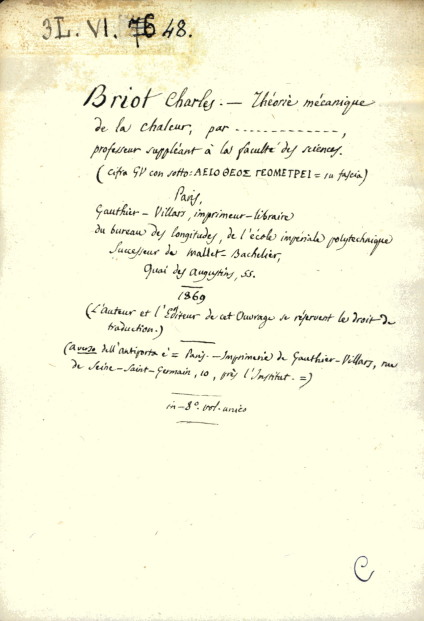 3L. VI. 76 48.
Briot Charles. — Théorie mécanique
de la chaleur, par - - - - - - - - - - - -,
professeur suppléant à la faculté des sciences.
(cifra GV con sotto: ΑΕΙ Ο ΘΕΟΣ ΓΕΟΜΕΤΡΕΙ = su fascia)
Paris,
Gauthier-Villars, imprimeur-libraire
du bureau des longitudes, de l'école impériale polytechnique
Successeur de Mallet-Bachelier,
Quai des Augustins, 55.
1869
(L'auteur et l'Editeur de cet Ouvrage se réservent le droit de
traduction.)
(a verso dell'antiporta è = Paris. — Imprimerie de Gauthier-Villars, rue
de Seine-Saint-Germain, 10, près l'Institut. =)
in-8°. vol. unico
C